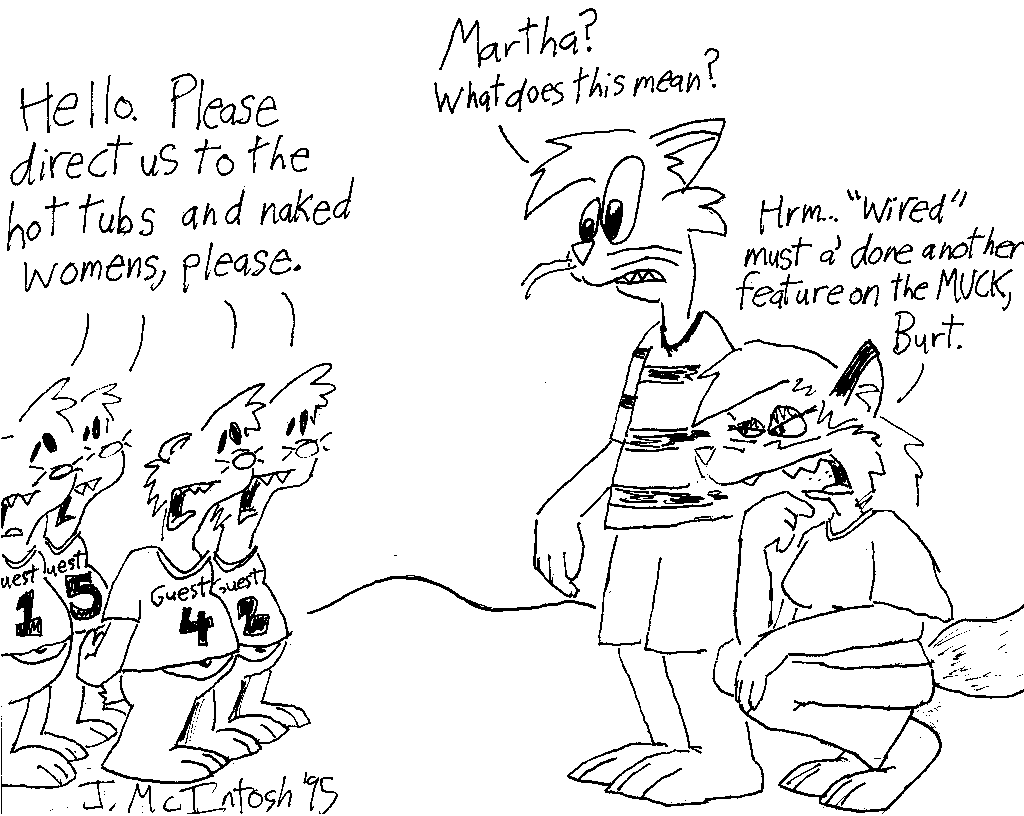 Hello. Please
direct us to the
hot tubs and naked
womens, please.
Martha?
What does this mean?
Hrm... "Wired"
must a' done another
feature on the MUCK,
Burt.
uest
1
uest
5
Guest
4
Guest
2
J. McIntosh '95